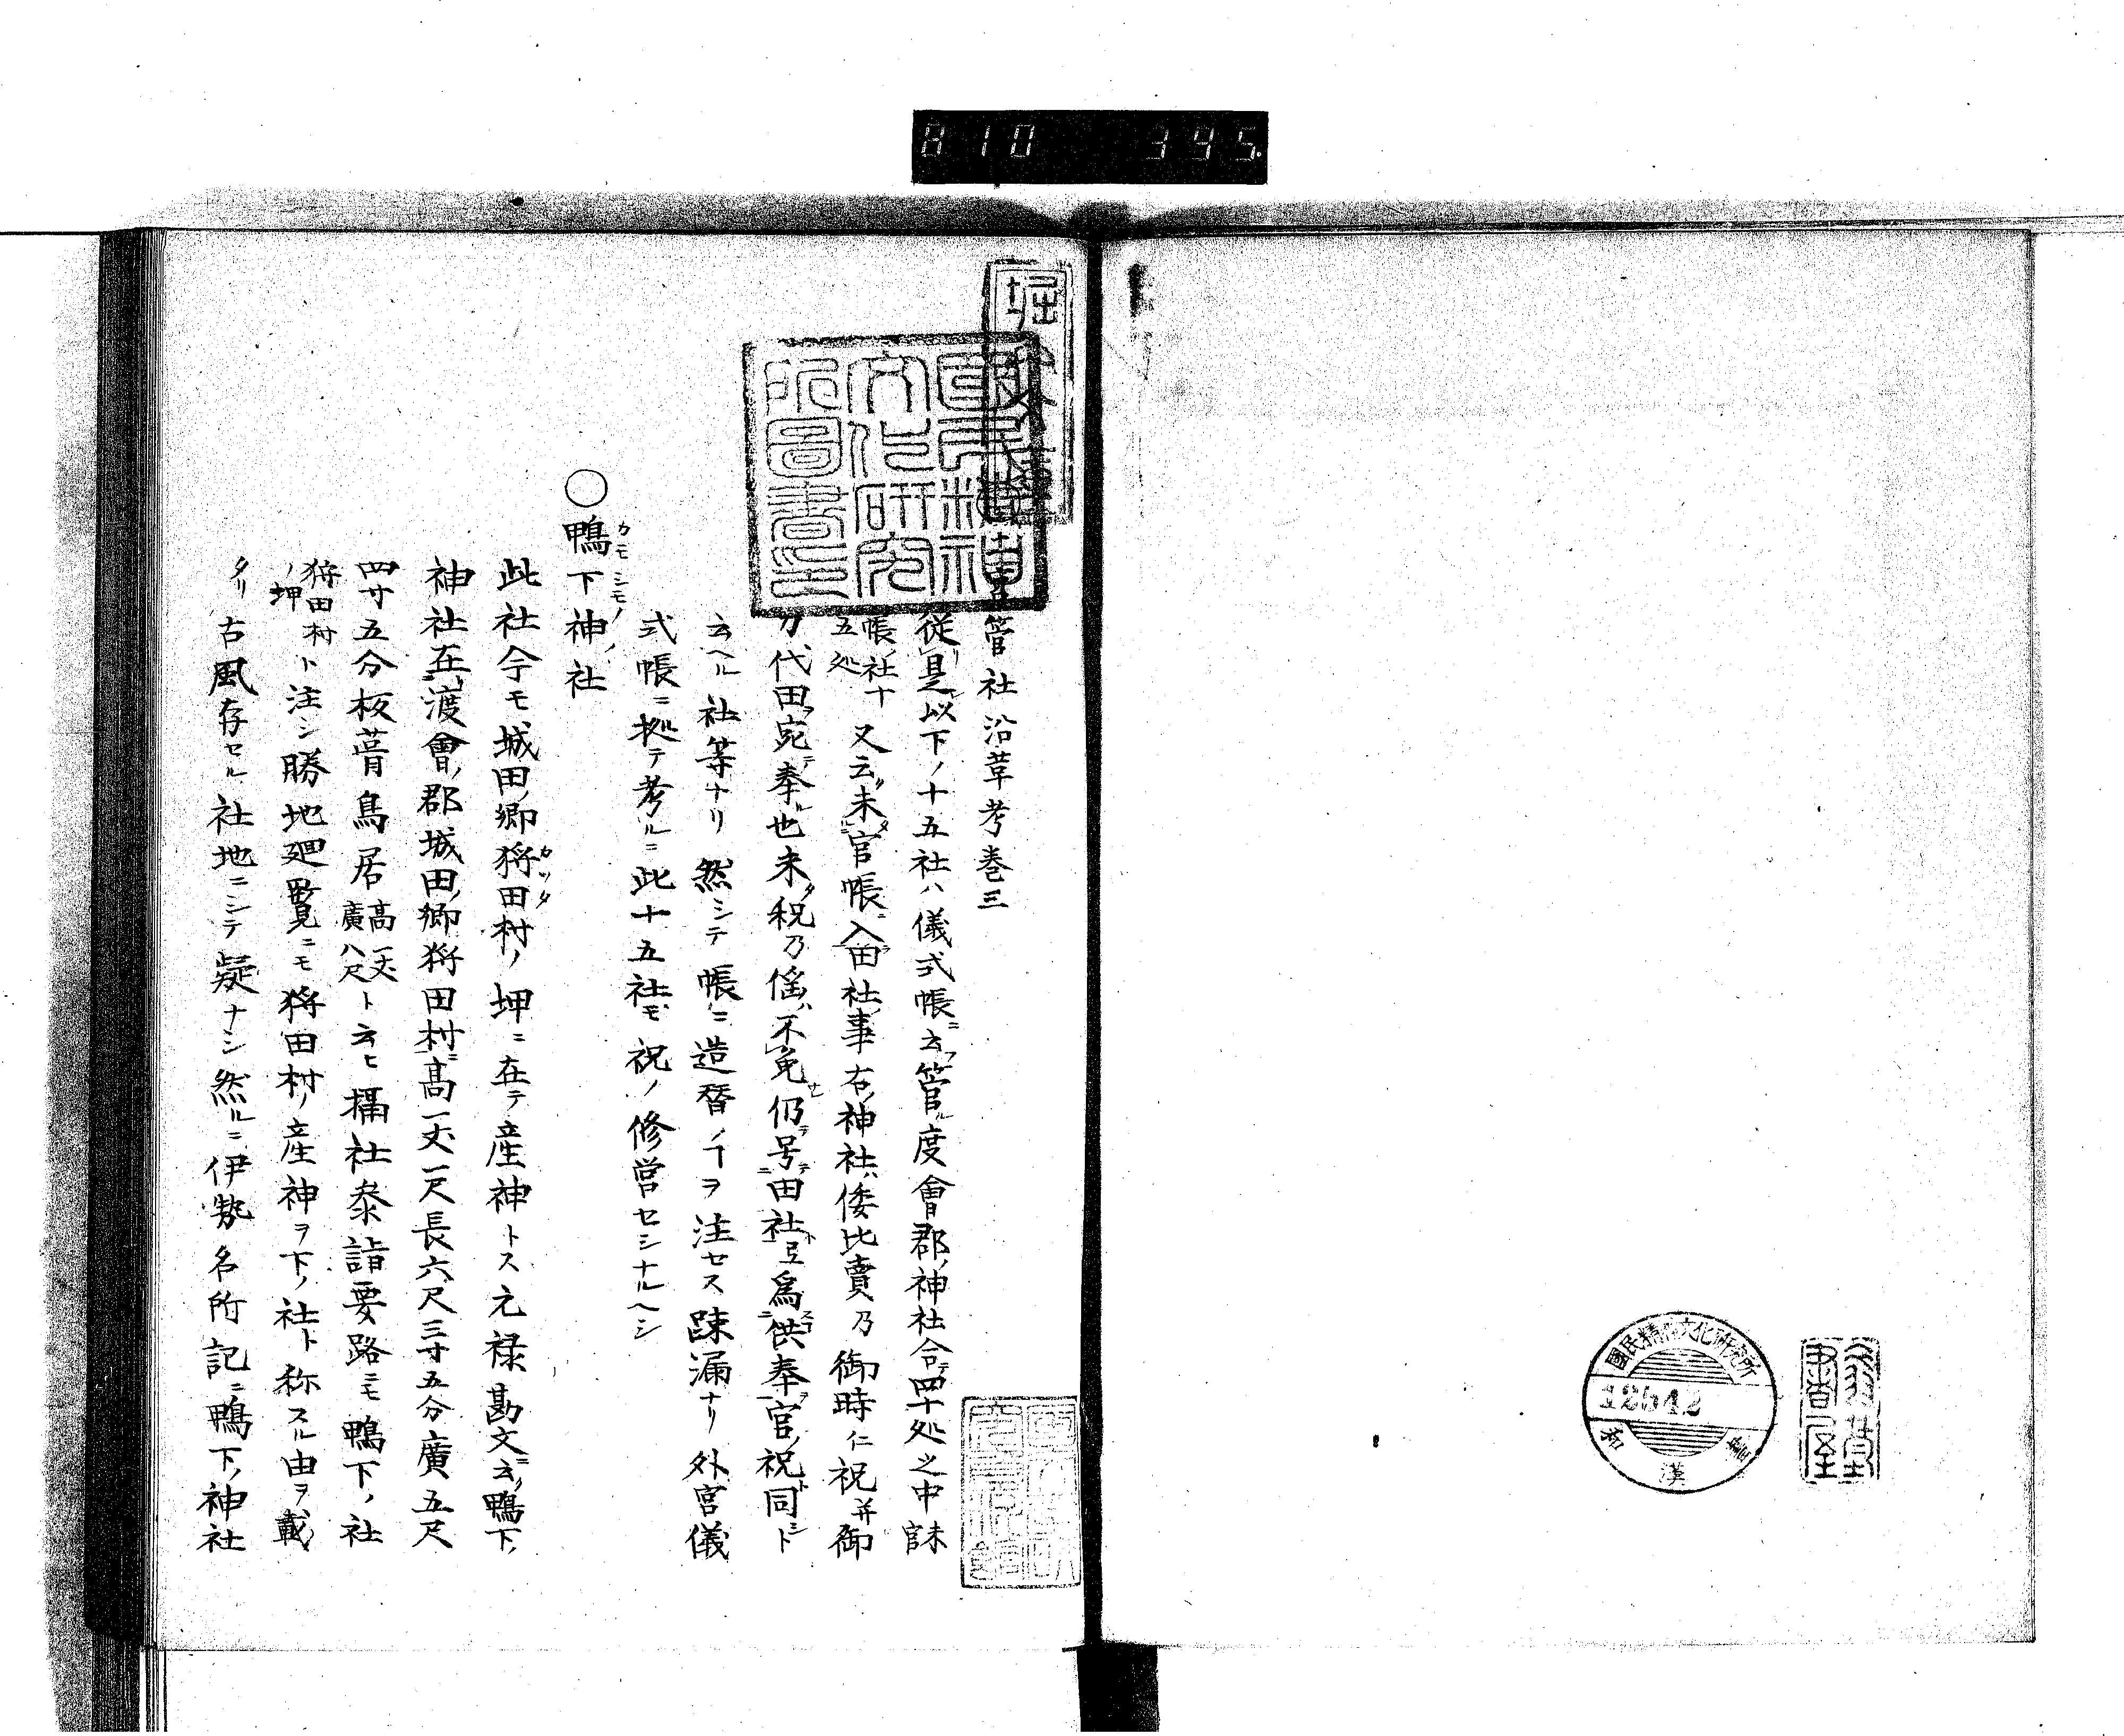 810 395.
國民精神文化研究所
12542
和漢書
國民精神文化研究所圖書之印
管社沿革考巻三
從是以下ノ十五社ハ儀式帳ニ云管度會郡神社合四十処之中未官
帳社十五処又云未官帳入田社事右神社倭比賣乃御時仁祝并御
刀代田宛奉也未祝乃傜不免仍号田社㠯爲供奉官祝同ト
云ヘル社等ナリ然シテ帳ニ造替ノヿヲ注セス踈漏ナリ外宮儀
式帳ニ拠テ考ルニ此十五社モ祝ノ修営セシナルヘシ
○鴨下神社
カモシモノ
此社今モ城田郷狩田村ノ坤ニ在テ産神トス元禄勘文云鴨下
カツタ
神社在渡會郡城田郷狩田村高一丈一尺長六尺三寸五分廣五尺
四寸五分板葺鳥居高一丈廣八尺ト云ヒ攝社叅詣要路ニモ鴨下ノ社
狩田村ノ坤ト注シ勝地廻覧ニモ狩田村ノ産神ヲ下ノ社ト称スル由ヲ載
タリ古風存セル社地ニシテ疑ナシ然ルニ伊勢名所記ニ鴨下神社